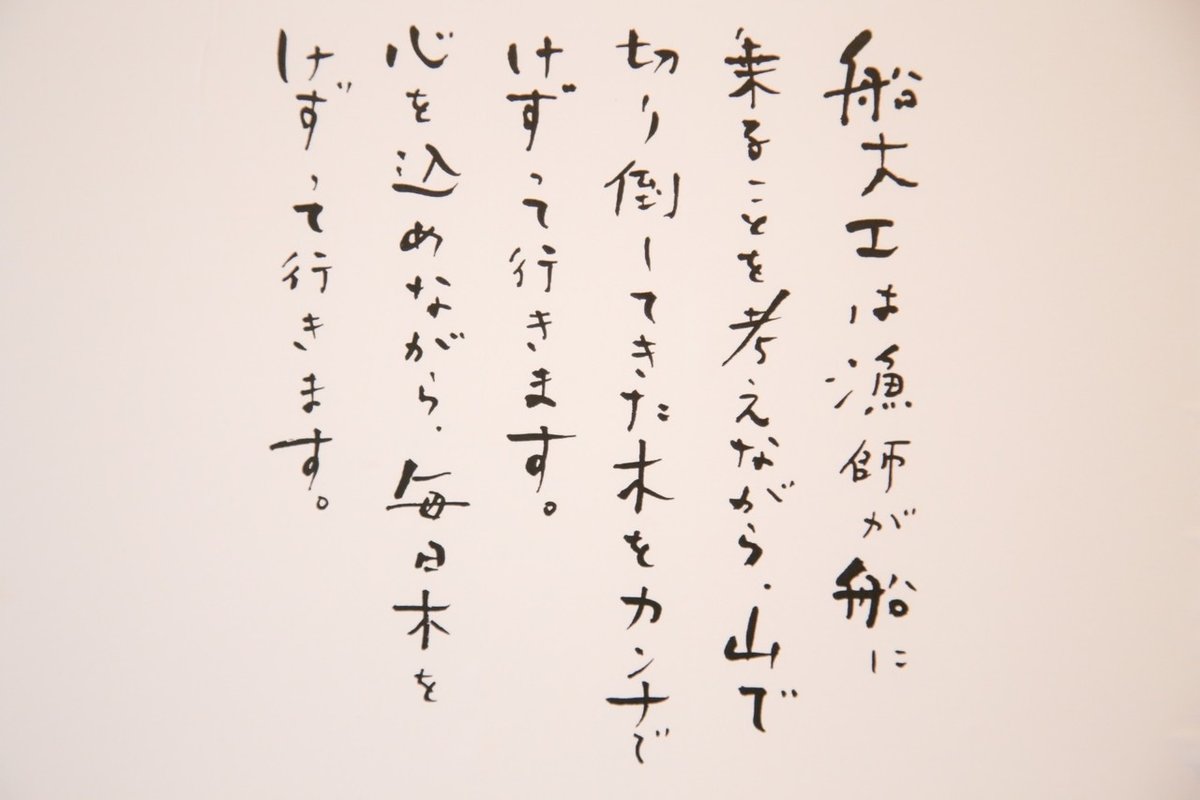 船大工は漁師が船に
乗ることを考えながら、山で
切り倒してきた木をカンナで
けずって行きます。
心を込めながら、毎日木を
けずって行きます。